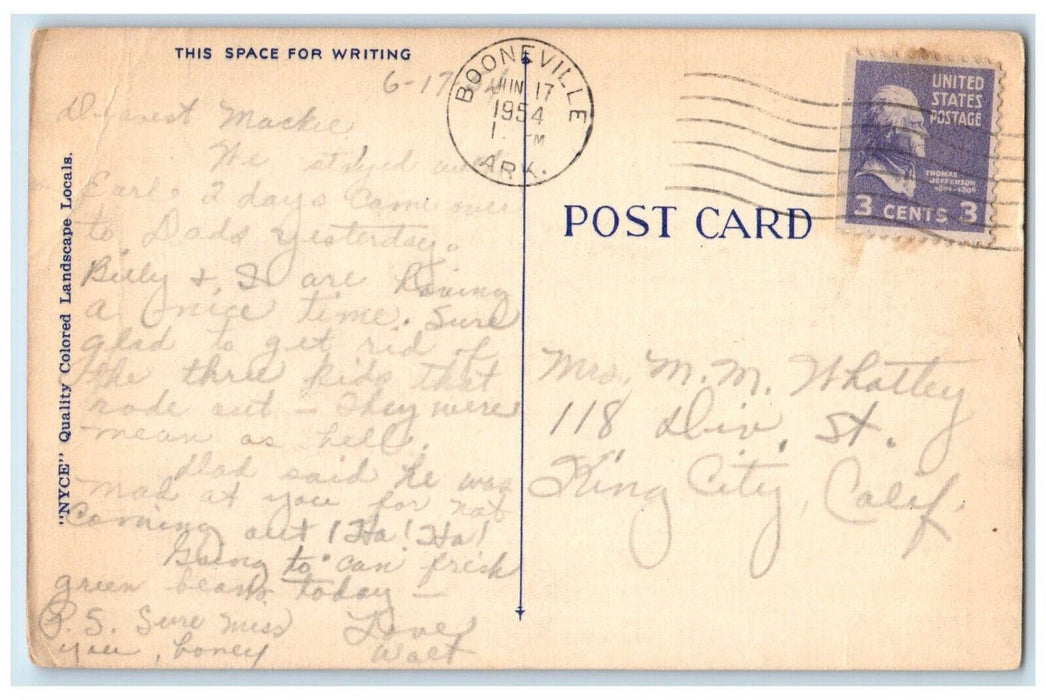 THIS SPACE FOR WRITING
6-17-54
Dearest Mackie
We stayed with
Earls 2 days Came over
to Dads yesterday.
Billy & I are having
a nice time. Sure
glad to get rid of
the three kids that
rode out - They were
mean as hell.
Dad said he was
mad at you for not
coming out! Ha! Ha!
Going to can fresh
green beans today -
P.S. Sure miss
you, honey
Love
Walt
"NYCE" Quality Colored Landscape Locals.
BOONEVILLE
JUN 17
1954
1 PM
ARK.
UNITED
STATES
POSTAGE
THOMAS
JEFFERSON
3 CENTS 3
POST CARD
Mrs. M. M. Whatley
118 Div. St.
King City, Calif.